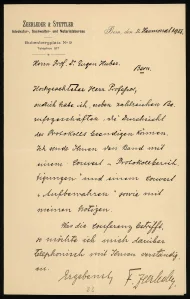 ZEERLEDER & STETTLER
Advokatur-, Sachwalter- und Notariatsbureau
Bubenbergplatz Nº 9
Telephon
Bern, den
Herrn Prof. Dr. Eugen Huber,
Bern.
Hochgeachteter Herr Professor,
endlich habe ich, neben zahlreichen Be-
rufsgeschäften die Durchsicht
des Protokolls beendigen können.
Ich sende Ihnen den Band mit
einem Couvert „Protokollberich-
tigungen" und einem Couvert
„Aufbewahren" sowie mit
meinen Notizen.
Was die Conferenz betrifft,
so möchte ich mich darüber
telephonisch mit Ihnen verständi-
gen.
Ergebenst
F. Zeerleder